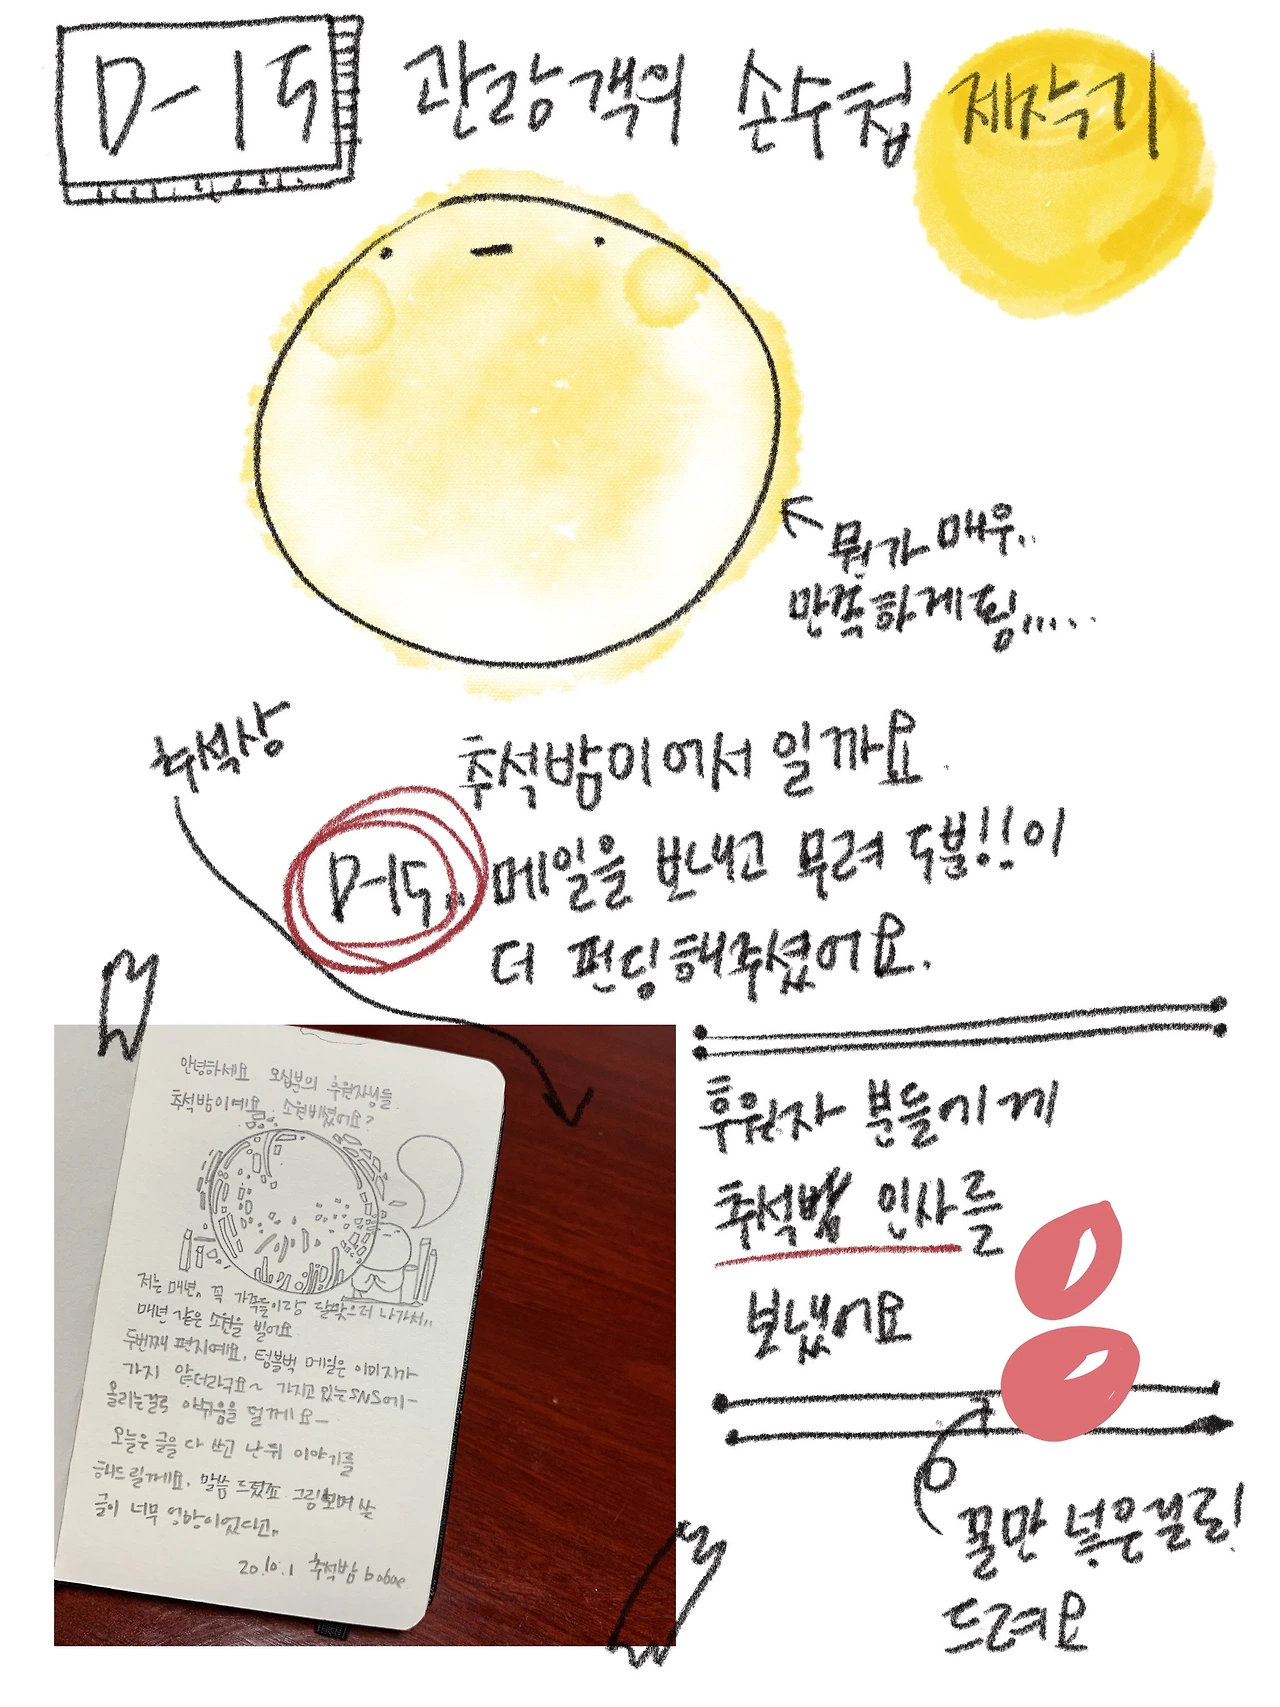 D-15 관람객의 손수첩 제작기
뭔가 매우..
만족하게됨.....
추석상
추석밤이어서 일까요.
D-15.. 메일을 보내고 무려 두분!!이
더 펀딩해주셨어요.
안녕하세요 오십분의 후원자님들
추석밤이에요 소원비셨어요?
저는 매년, 꼭 가족들이랑 달맞으러 나가서..
매년 같은 소원을 빌어요
두번째 편지예요, 텀블벅 메일은 이미지가
가지 않더라구요~ 가지고 있는 SNS에-
올리는걸로 아쉬움을 덜게요-
오늘은 글을 다 쓰고 난 뒤 이야기를
해드릴께요. 말씀 드렸죠 그림보며 쓰는
글이 너무 엉망이었다고..
20.10.1 추석밤 bobae
후원자 분들에게
추석밤 인사를
보냈어요
꿀만 넣은걸로!
드려요